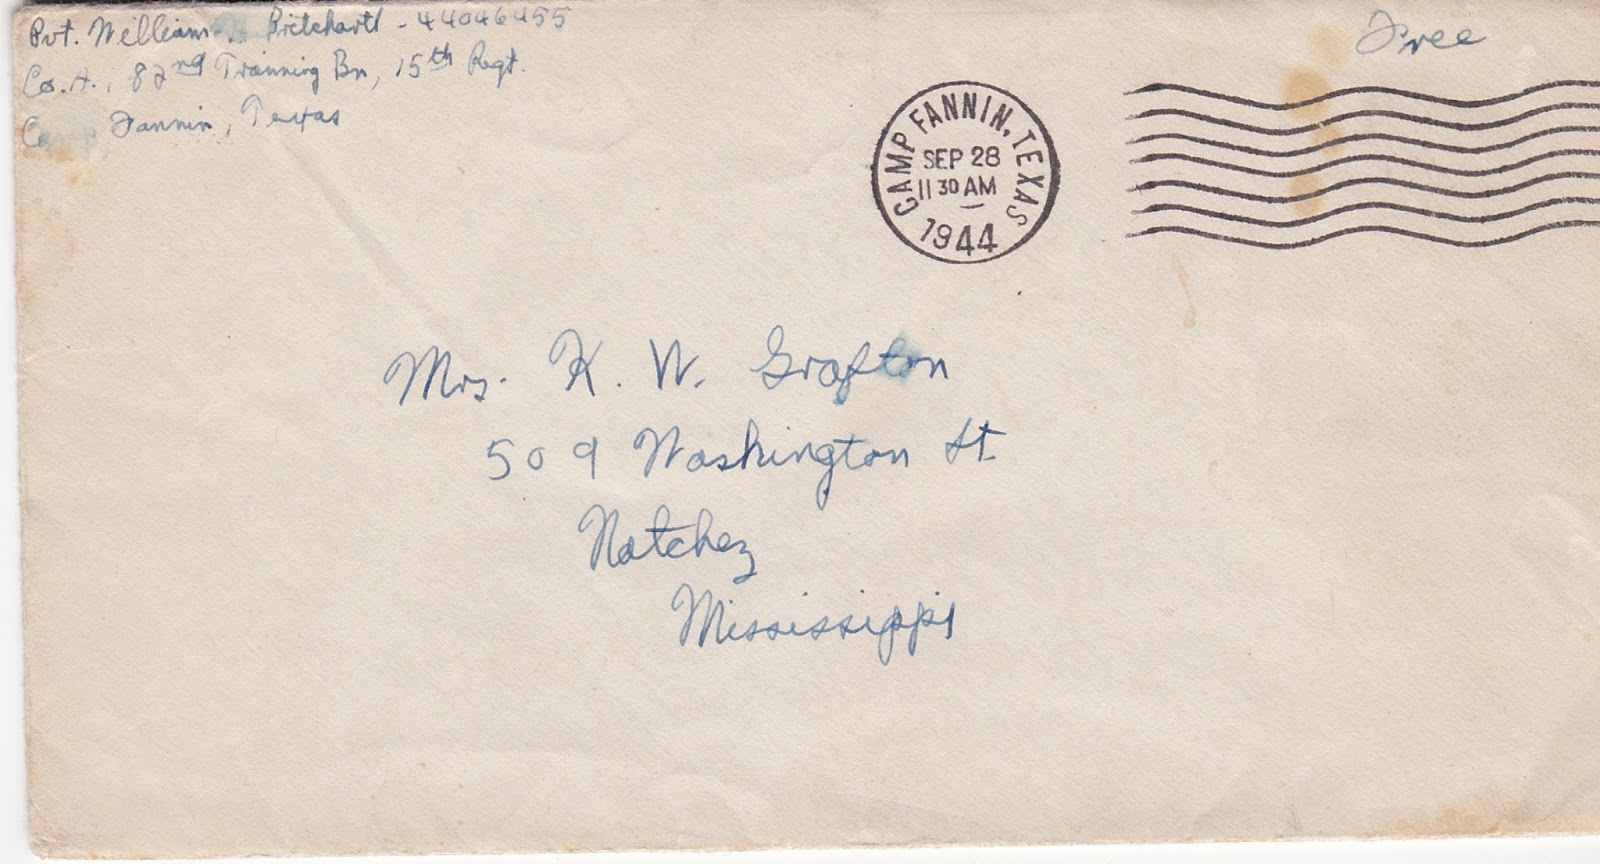 Pvt. William Pritchartt - 44046455
Co. A., 82nd Training Bn, 15th Regt.
Camp Fannin, Texas
Free
CAMP FANNIN, TEXAS
SEP 28
11 30 AM
1944
Mrs. K. W. Grafton
509 Washington St.
Natchez
Mississippi